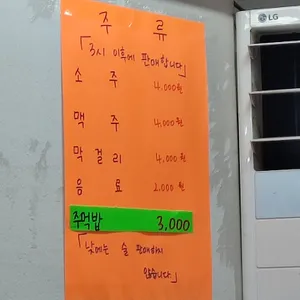 주 류
「3시 이후에 판매합니다」
소 주 4,000원
맥 주 4,000원
막 걸 리 4,000원
음 료 2,000원
주먹밥 3,000
「낮에는 술 판매하지
않습니다.」
LG